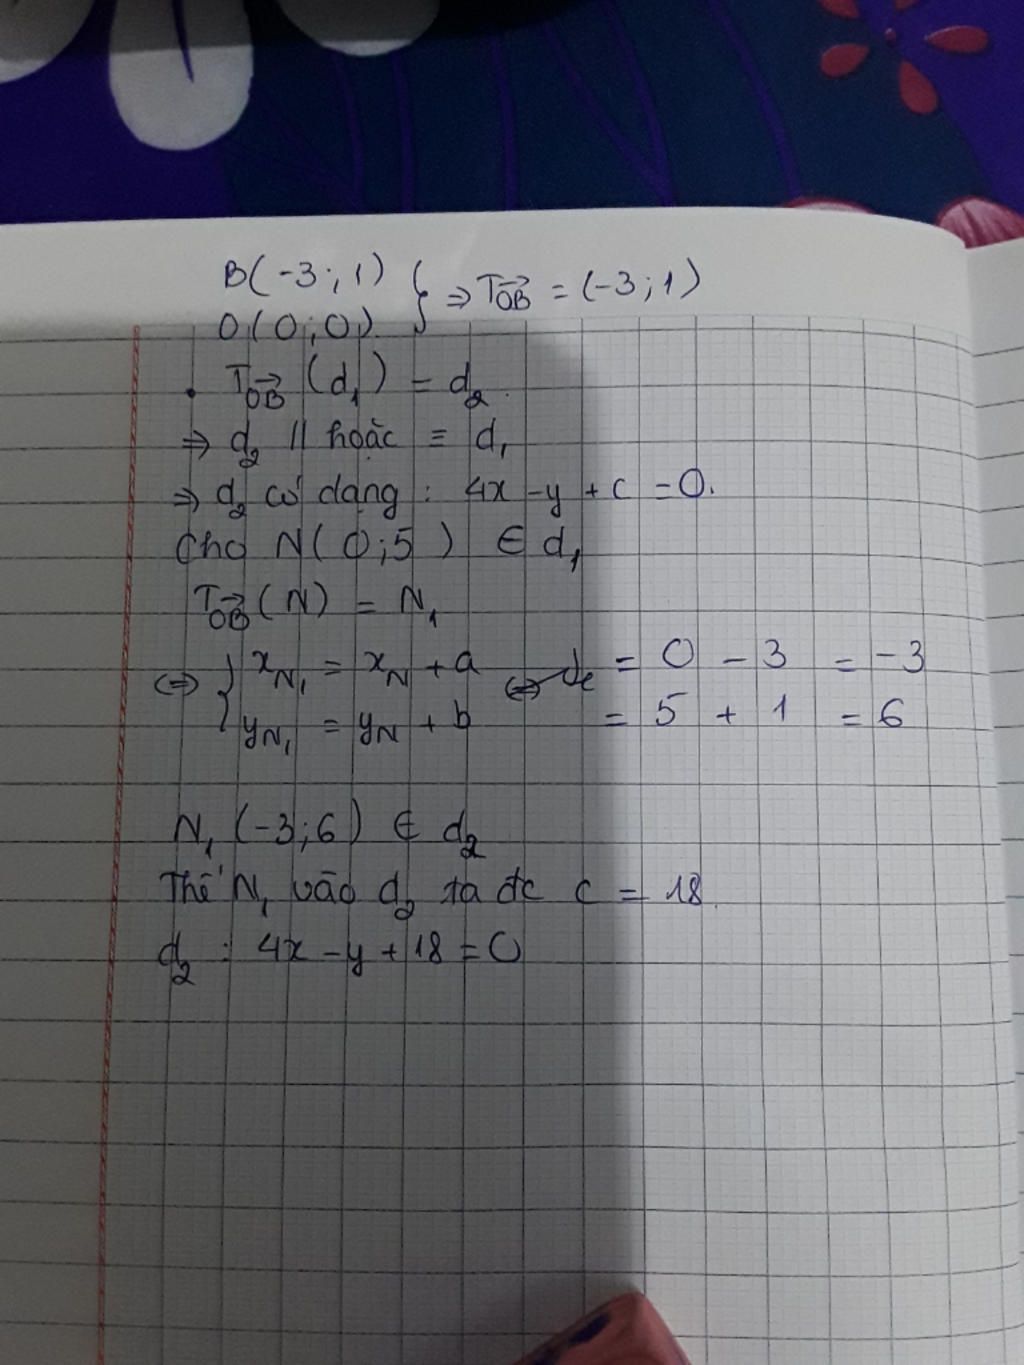 B(-3;1)
O(0;0) } ⇒ T_OB→ = (-3;1)
• T_OB→ (d₁) = d₂.
⇒ d₂ // hoặc ≡ d₁
⇒ d₂ có dạng : 4x - y + c = 0.
Cho N(0;5) ∈ d₁
T_OB→ (N) = N₁
⇔ { x_N₁ = x_N + a ⇔ = 0 - 3 = -3
y_N₁ = y_N + b = 5 + 1 = 6
N₁ (-3;6) ∈ d₂
Thế N₁ vào d₂ ta đc c = 18.
d₂ : 4x - y + 18 = 0